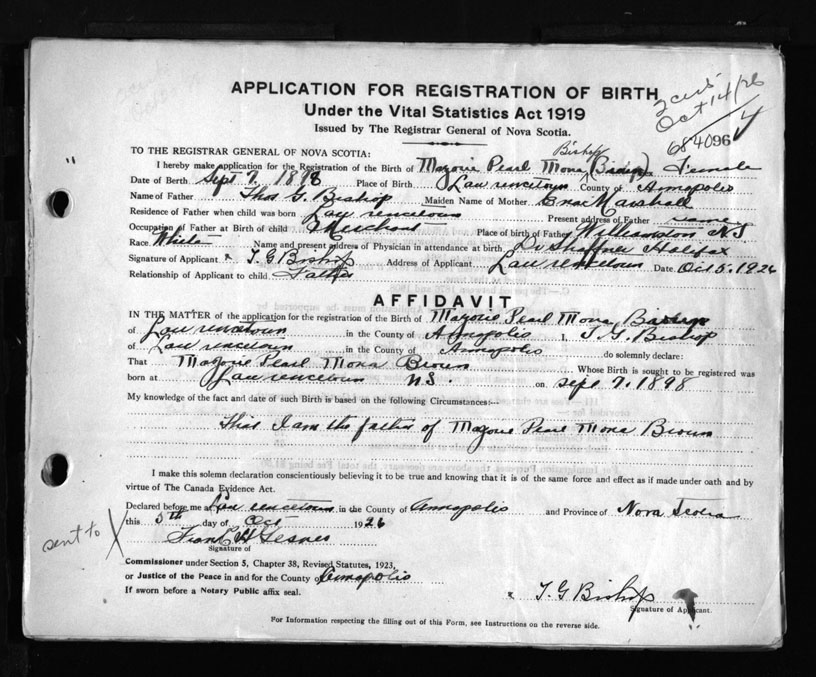 APPLICATION FOR REGISTRATION OF BIRTH
Under the Vital Statistics Act 1919
Issued by The Registrar General of Nova Scotia.
Oct 14/26
684096
TO THE REGISTRAR GENERAL OF NOVA SCOTIA:
Bishop
I hereby make application for the Registration of the Birth of Marjorie Pearl Mona (Bishop) Female
Date of Birth Sept 7. 1898 Place of Birth Lawrencetown County of Annapolis
Name of Father Thos G. Bishop Maiden Name of Mother Ena Marshall
Residence of Father when child was born Lawrencetown Present address of Father same
Occupation of Father at Birth of child Merchant Place of birth of Father Williamston N.S
Race White Name and present address of Physician in attendance at birth Dr Shaffner Halifax
Signature of Applicant x T. G Bishop Address of Applicant Lawrencetown Date Oct 5. 1926
Relationship of Applicant to child Father
AFFIDAVIT
IN THE MATTER of the application for the registration of the Birth of Marjorie Pearl Mona Bishop
of Lawrencetown in the County of Annapolis I, T. G. Bishop
of Lawrencetown in the County of Annapolis do solemnly declare:
That Marjorie Pearl Mona Brown Whose Birth is sought to be registered was
born at Lawrencetown N.S. on Sept 7. 1898
My knowledge of the fact and date of such Birth is based on the following Circumstances:—
That I am the father of Marjorie Pearl Mona Brown
I make this solemn declaration conscientiously believing it to be true and knowing that it is of the same force and effect as if made under oath and by
virtue of The Canada Evidence Act.
Declared before me at Lawrencetown in the County of Annapolis and Province of Nova Scotia
this 5th day of Oct 1926
sent to X
Frank H
Signature of
Commissioner under Section 5, Chapter 38, Revised Statutes, 1923,
or Justice of the Peace in and for the County of Annapolis
If sworn before a Notary Public affix seal.
x T. G Bishop
Signature of Applicant.
For Information respecting the filling out of this Form, see Instructions on the reverse side.